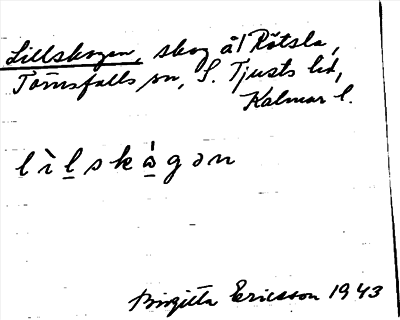 Lillskogen, skog åt Rötsla,
Törnsfalls sn, S. Tjusts hd,
Kalmar l.
lìlskågən
Birgitta Ericsson 1943